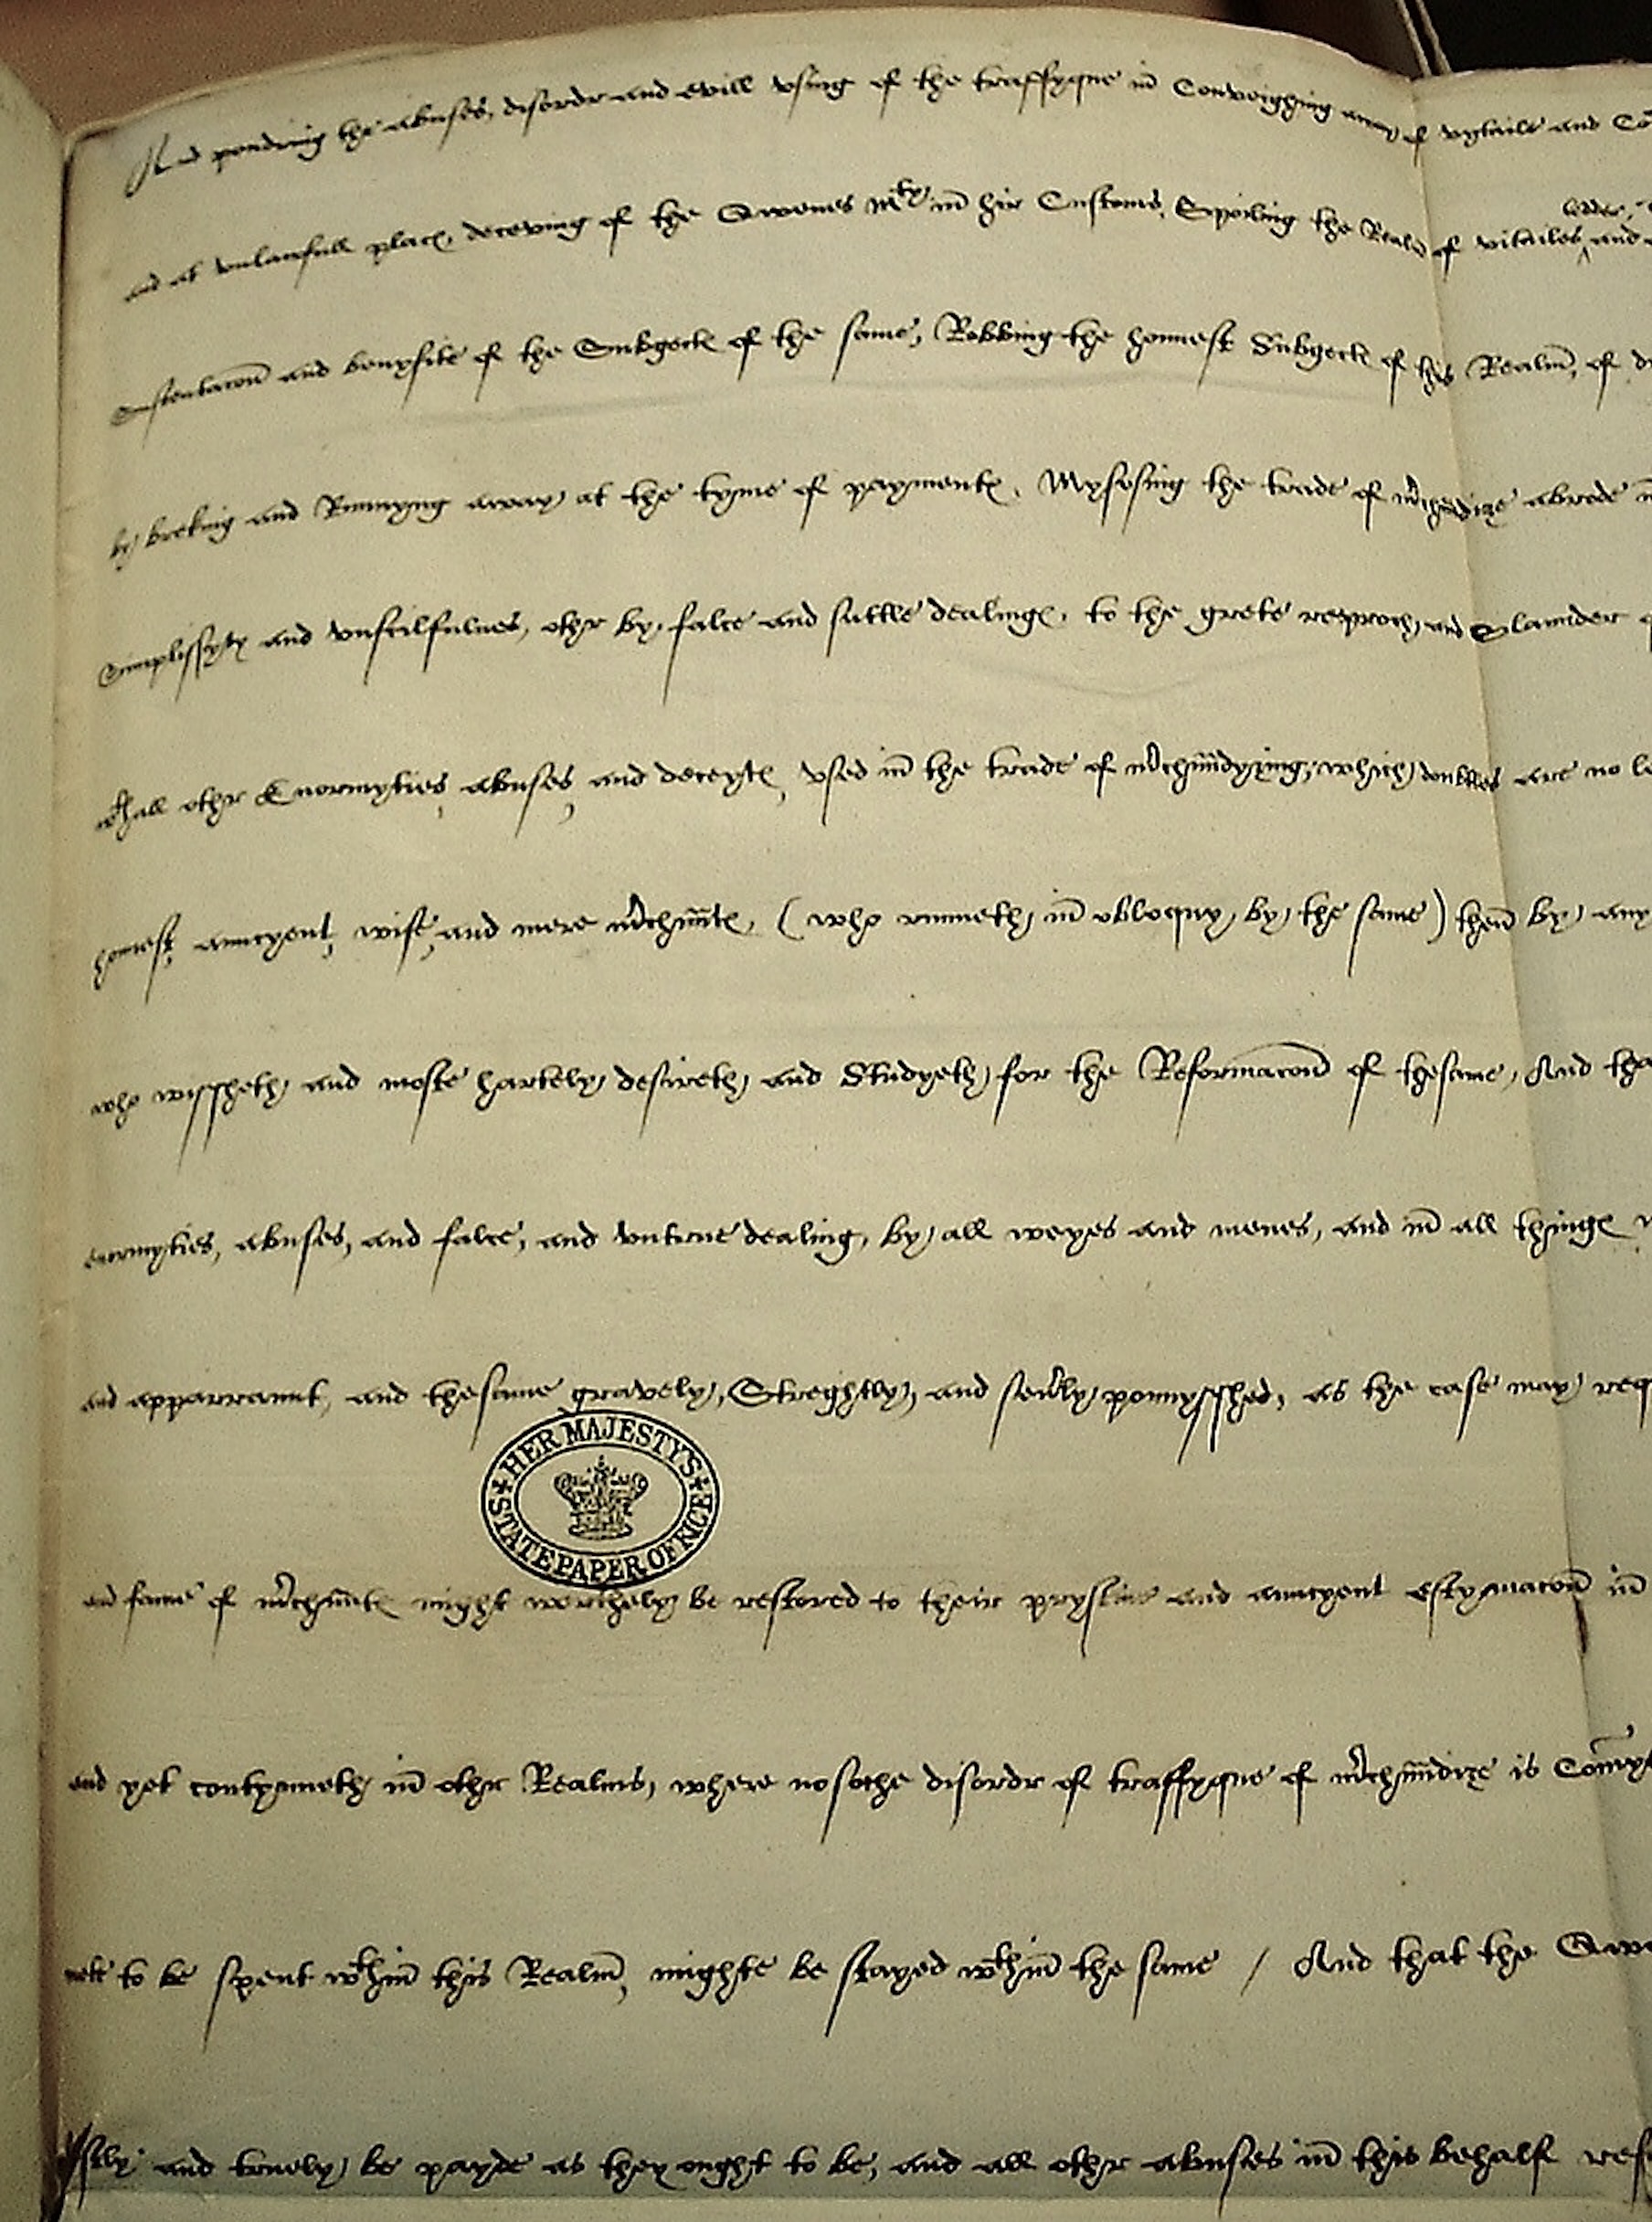 And pondring the abuses, disordr and evill vsing of the traffyque in Conveighing away of vytaile and Co
ledder,
and at vnlawfull places, deceving of the Qwenes Mty in hir Customs, Spoiling the Realm of vitailes, and
Sustentacon and benyfite of the Subgectes of the same, Robbing the honnest Subgectes of this Realm, of
by breking and Runnyng away at the tyme of paymentes, Mysvsing the trade of mrchandize abrode
Simplissyty and vnskilfulnes, othr by falce and suttle dealinges, to the grete reproch and Slaunder
all othr Enormyties, abuses, and deceytes, vsed in the trade of mrchanndyzing, which doubtles are no le
honest, auncyent, wise, and mere mrchanntes, (who runneth in obloquy by the same) then by any
who wissheth and moste hartely desireth and Studyeth for the Reformacon of thesame, And tha
enormyties, abuses, and falce, and vntrue dealing, by all weyes and menes, and in all thinges
and apparraunt, and thesame gravely, Streghtly, and sevrly ponnysshed, as the case may req
HER MAJESTY'S STATE PAPER OFFICE
and fame of mrchanntes might worthely be restored to their prystins and auncyent estymacon in
and yet contynneth in othr Realms, where no soche disordr of traffyque of mrchanndize is
to be spent wthin this Realm, mighte be stayed wthin the same / And that the Qwe
and truely be payde as they ought to be, and all othr abuses in this behalf ref